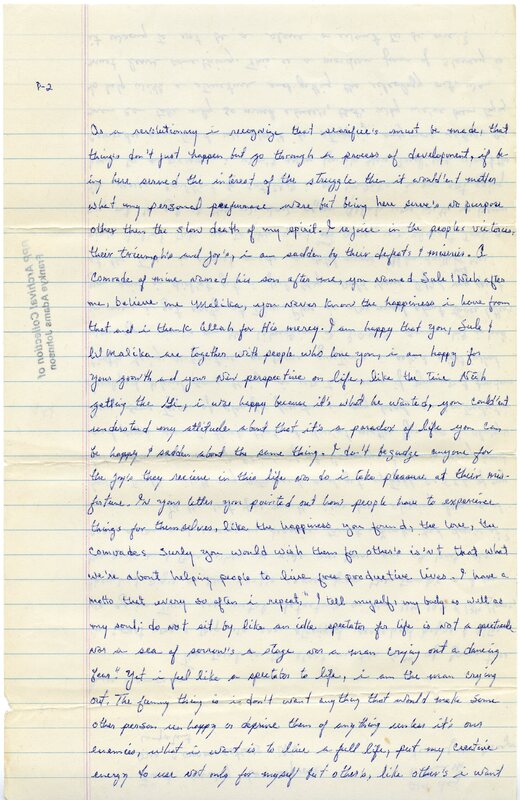 P-2
As a revolutionary i recognize that scarifice's must be made, that
thing's don't just happen but go through a process of development, if be
ing here served the interest of the struggle then it wouldn't matter
what my personal were but being here serve's no purpose
other then the slow death of my spirit. I rejoice in the peoples victories,
their triumph's and joy's, i am sadden by their defeats & miseries. A
Comrade of mine named his son after me, you named Sule & Nuh after
me, believe me Malika, you never know the happiness i have from
that and i thank Allah for His mercy. I am happy that you, Sule &
lil Malika are together with people who love you, i am happy for
your growth and your new perspective on life, like the Time Nuh
getting the Gi, i was happy because it's what he wanted, you could'nt
understand my attitude about that it's a paradox of life you can
be happy & sadden about the same thing. I don't begudge anyone for
the joy's they recieve in this life nor do i take pleasure at their mis-
fortune. In your letter you pointed out how people have to experience
things for themselves, like the happiness you found, the love, the
comrades surley you would wish them for other's is'nt that what
we're about helping people to live free productive lives. I have a
motto that every so often i repeat, "I tell myself, my body as well as
my soul; do not sit by like an idle spectator for life is not a spectacle
nor a sea of sorrow's a stage nor a man crying out a dancing
bear." Yet i feel like a spectator to life, i am the man crying
out. The funny thing is i don't want anything that would make some
other person unhappy or deprive them of anything unless it's our
enemies, what i want is to live a full life, put my creative
energy to use not only for myself but other's, like other's i want
BPP Archival Collection of
Frankye Adams Johnson